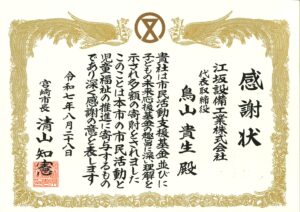 感謝状
江坂設備工業株式会社
代表取締役
鳥山貴生 殿
貴社は市民活動支援基金並びに
子どもの未来応援基金の趣旨に深い理解を
示され多額の寄附をされました
このことは本市の市民活動と
児童福祉の推進に寄与するもの
であり深く感謝の意を表します
令和七年八月二十八日
宮崎市長 清山知憲